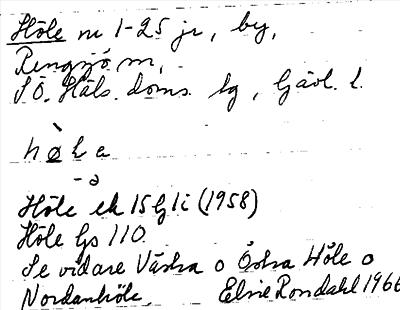 Höle nr 1-25 jr, by,
Ringsjö m,
S Ö. Häls. doms. lg, Gävl. l.
hòla
-ə
Höle ek 15 G li (1958)
Höle Gs 110.
Se vidare Västra o Östra Höle o
Nordanhöle. Elsie Rondahl 1966